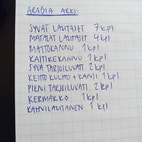 ARABIA ARKI
SYVÄT LAUTASET 7 kpl
MATALAT LAUTASET 4 kpl
MAITOKANNU 1 kpl
KASTIKEKANNU 1 kpl
SYVÄ TARJOILUVATI 2 kpl
KEITTOKULHO + KANSI 1 kpl
PIENI TARJOILUVATI 2 kpl
KERMAKKO 1 kpl
KAHVILAUTANEN 1 kpl